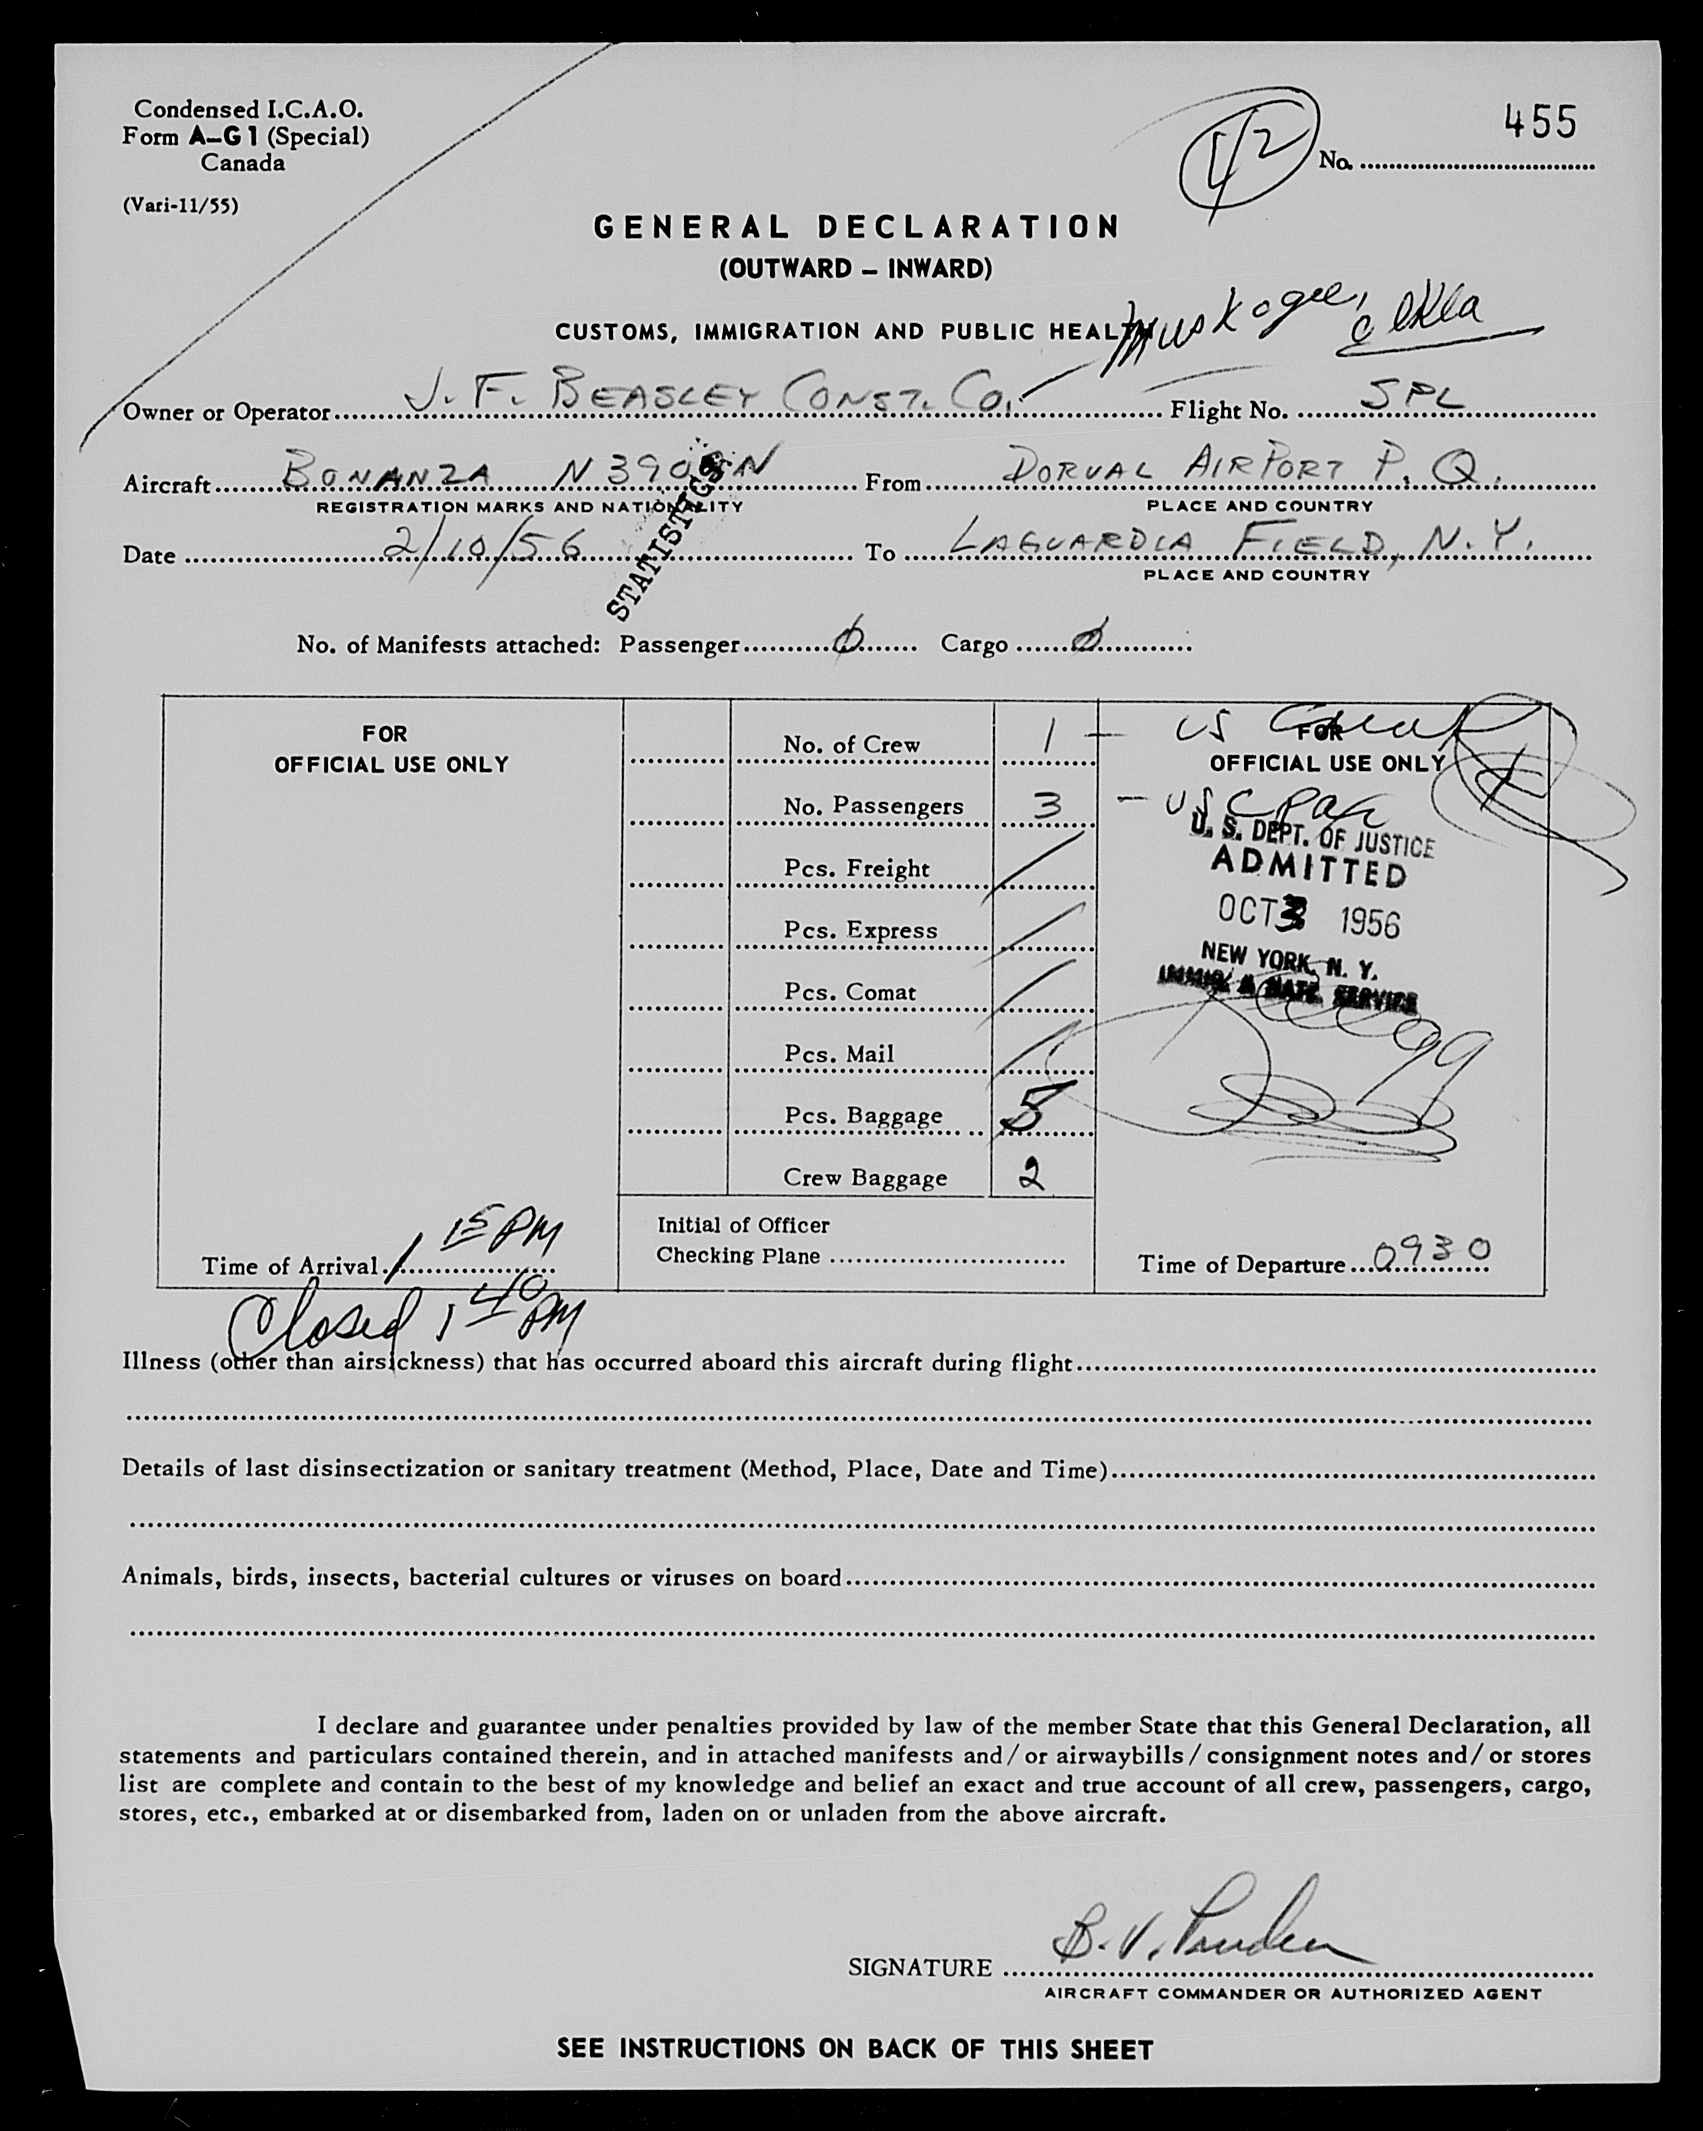 Condensed I.C.A.O.
Form A-G1 (Special)
Canada
(Vari-11/55)
42
455
No. 
GENERAL DECLARATION
(OUTWARD – INWARD)
CUSTOMS, IMMIGRATION AND PUBLIC HEALTH
Muskogee, Okla
Owner or Operator J. F. BEASLEY CONST. CO. Flight No. SPL
Aircraft BONANZA From DORVAL AIRPORT P. Q.
REGISTRATION MARKS AND NATIONALITY PLACE AND COUNTRY
STATISTICS
Date 2/10/56 To LAGUARDIA FIELD, N.Y.
PLACE AND COUNTRY
No. of Manifests attached: Passenger Ø Cargo Ø
FOR
OFFICIAL USE ONLY
No. of Crew 1 – US
No. Passengers 3 – USC
Pcs. Freight
Pcs. Express
Pcs. Comat
Pcs. Mail
Pcs. Baggage 5
Crew Baggage 2
FOR
OFFICIAL USE ONLY
U. S. DEPT. OF JUSTICE
ADMITTED
OCT 1956
NEW YORK, N. Y.
IMMIG. & NATZ. SERVICE
Time of Arrival 1 15 PM
Initial of Officer
Checking Plane
Time of Departure 0930
Closed 1 40 PM
Illness (other than airsickness) that has occurred aboard this aircraft during flight
Details of last disinsectization or sanitary treatment (Method, Place, Date and Time)
Animals, birds, insects, bacterial cultures or viruses on board
I declare and guarantee under penalties provided by law of the member State that this General Declaration, all
statements and particulars contained therein, and in attached manifests and/or airwaybills/consignment notes and/or stores
list are complete and contain to the best of my knowledge and belief an exact and true account of all crew, passengers, cargo,
stores, etc., embarked at or disembarked from, laden on or unladen from the above aircraft.
SIGNATURE B. V.
AIRCRAFT COMMANDER OR AUTHORIZED AGENT
SEE INSTRUCTIONS ON BACK OF THIS SHEET